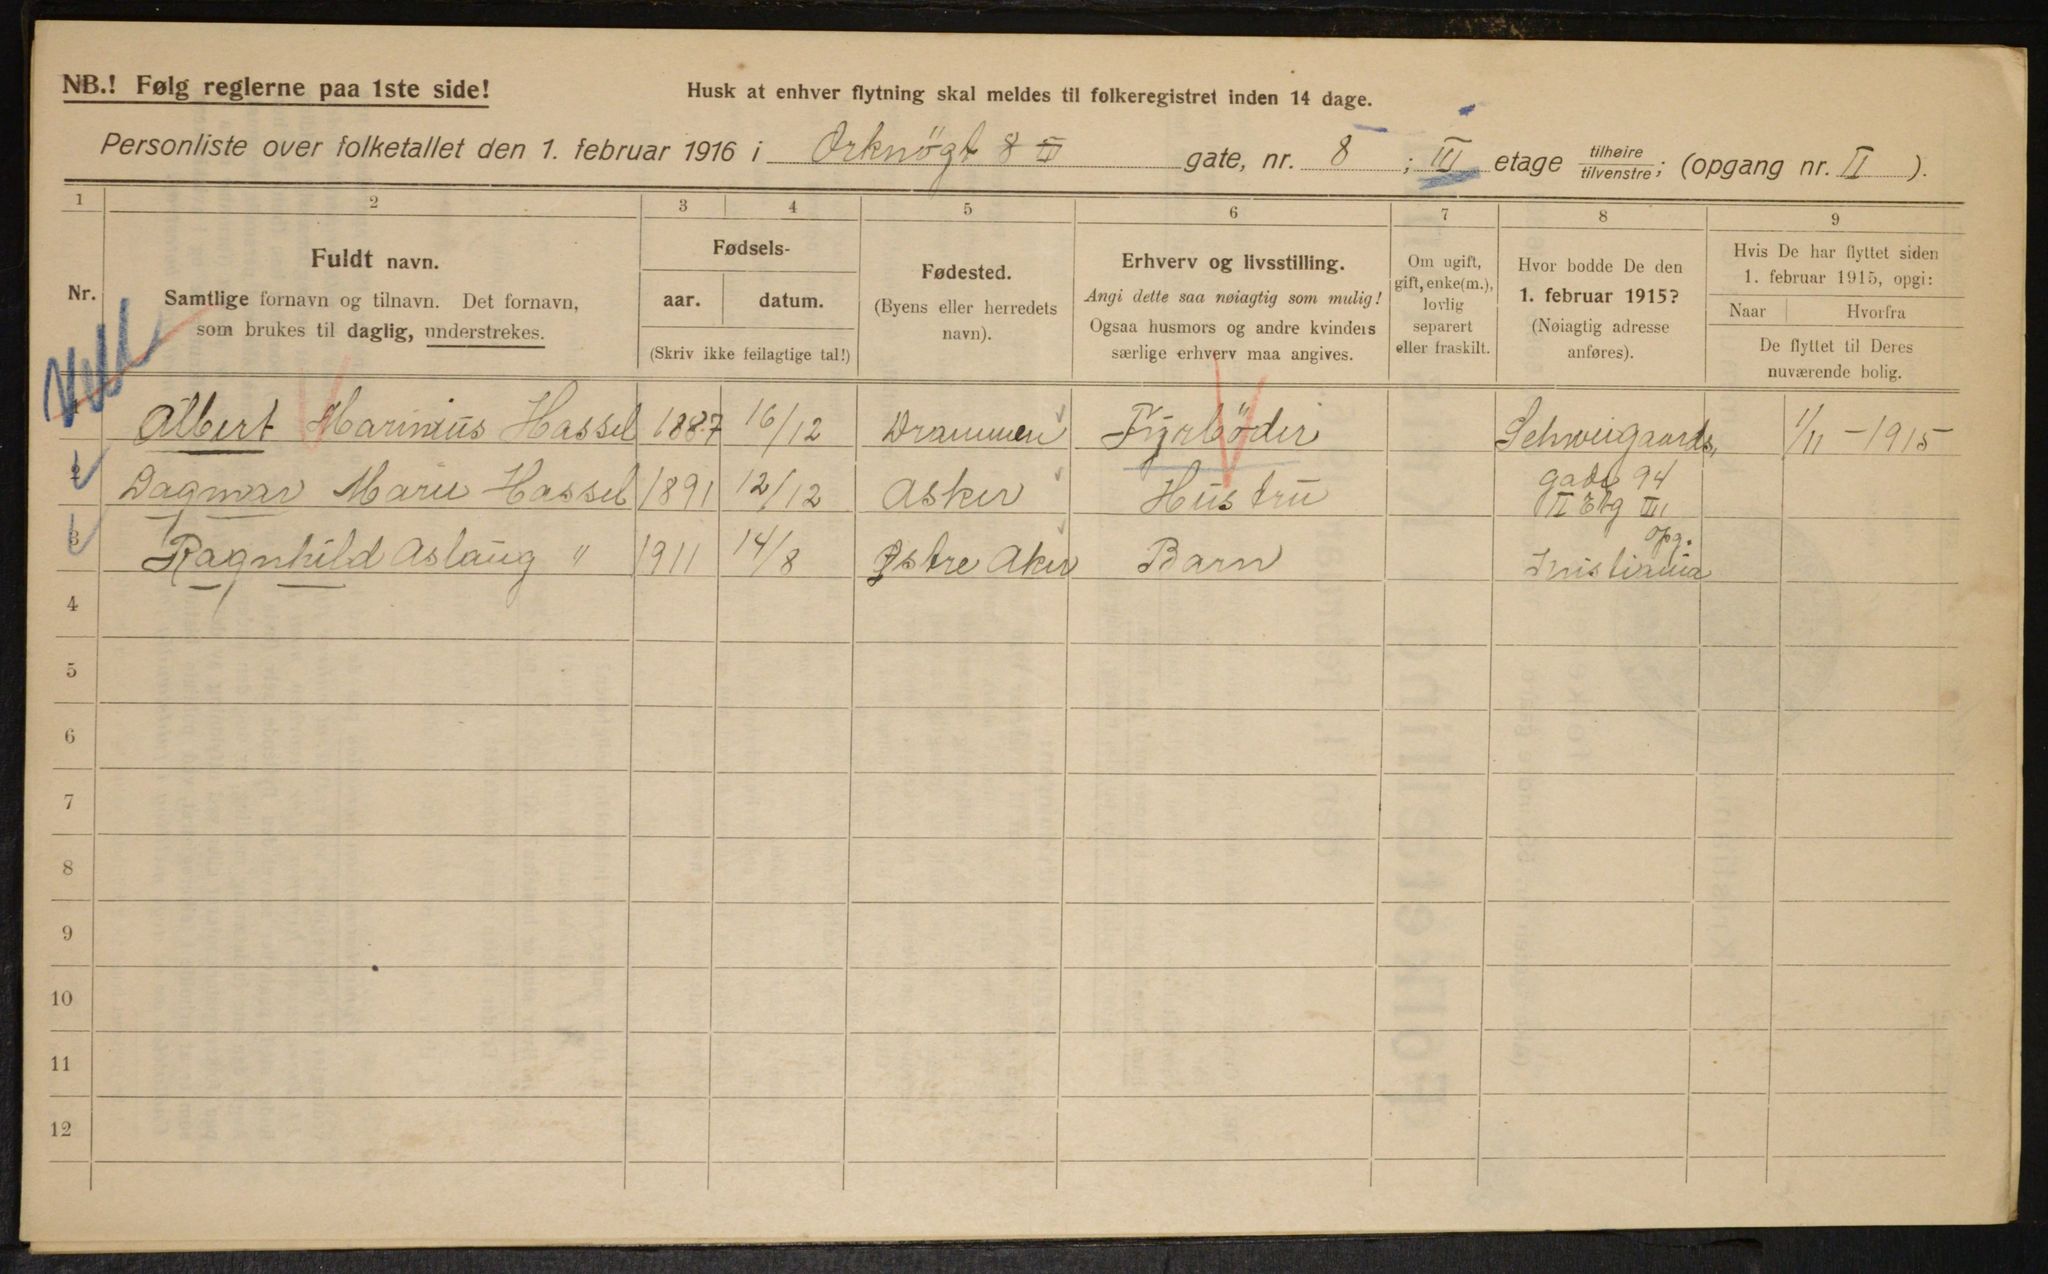 NB.! Følg reglerne paa 1ste side!
Husk at enhver flytning skal meldes til folkeregistret inden 14 dage.
Personliste over folketallet den 1. februar 1916 i Orknögt 8 II gate, nr. 8 ; III etage tilhøire/tilvenstre; (opgang nr. II ).
1 2 3 4 5 6 7 8 9
Nr.
Fuldt navn.
Samtlige fornavn og tilnavn. Det fornavn,
som brukes til daglig, understrekes.
Fødsels-
aar. datum.
(Skriv ikke feilagtige tal!)
Fødested.
(Byens eller herredets
navn).
Erhverv og livsstilling.
Angi dette saa nøiagtig som mulig!
Ogsaa husmors og andre kvinders
særlige erhverv maa angives.
Om ugift,
gift, enke(m.),
lovlig
separert
eller fraskilt.
Hvor bodde De den
1. februar 1915?
(Nøiagtig adresse
anføres).
Hvis De har flyttet siden
1. februar 1915, opgi:
Naar Hvorfra
De flyttet til Deres
nuværende bolig.
1 Albert Marinius Hassel 1887 16/12 Drammen Fyrböder Schweigaards, 1/11 - 1915
2 Dagmar Marie Hassel 1891 12/12 Asker Hustru gade 94
II Etg III
opg.
3 Ragnhild Aslaug " 1911 14/8 Østre Aker Barn Kristiania
4
5
6
7
8
9
10
11
12